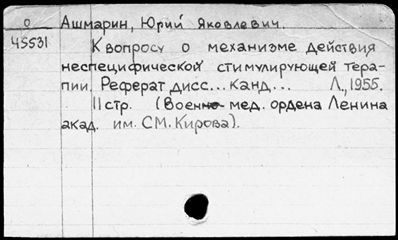 О Ашмарин, Юрий Яковлевич.
45531 К вопросу о механизме действия
неспецифической стимулирующей тера-
пии. Реферат дисс... канд... Л., 1955.
11 стр. (Военно-мед. ордена Ленина
акад. им. С.М. Кирова).